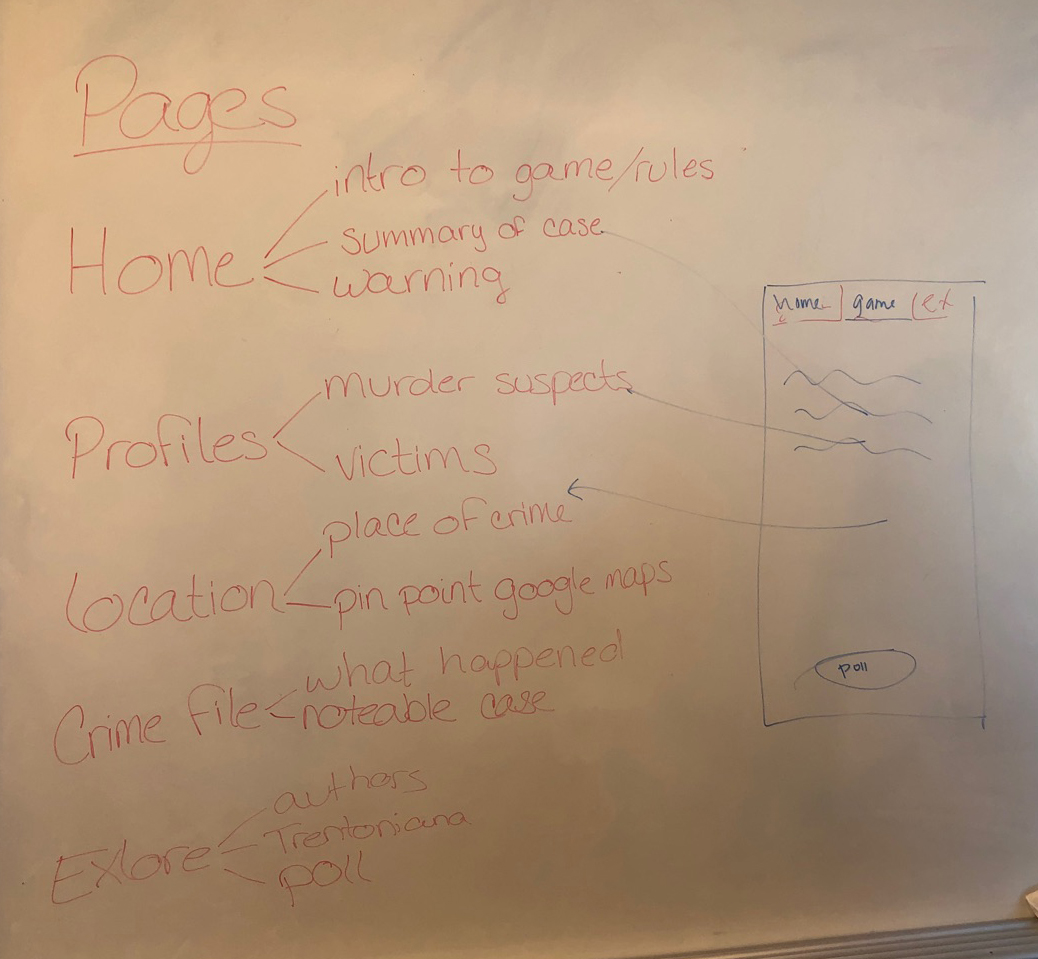 Pages
Home
intro to game/rules
summary of case
warning
Profiles
murder suspects
victims
Location
place of crime
pin point google maps
Crime file
what happened
noteable case
Exlore
authors
Trentoniana
poll
home game ex
poll